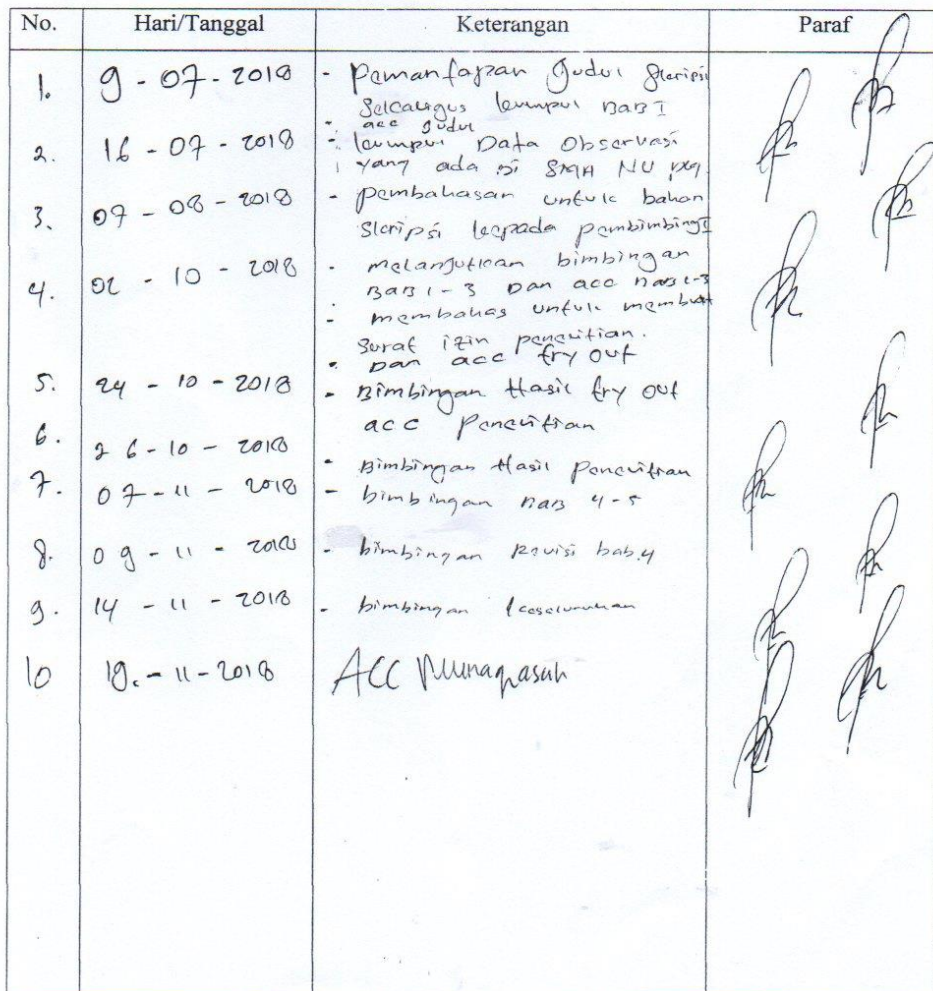 No. Hari/Tanggal Keterangan Paraf
1. 9 - 07 - 2018 - Pemantapan Judul Skripsi
Sekaligus kumpul BAB I
- acc Judul
2. 16 - 07 - 2018 - kumpul Data Observasi
yang ada di SMA NU
3. 07 - 08 - 2018 - pembahasan untuk bahan
Skripsi kepada pembimbing I
4. 02 - 10 - 2018 - melanjutkan bimbingan
BAB 1-3 Dan acc BAB 1-3
- membahas untuk membuat
Surat izin penelitian.
- Dan acc try out
5. 24 - 10 - 2018 - Bimbingan Hasil try out
acc penelitian
6. 26 - 10 - 2018 - Bimbingan Hasil penelitian
7. 07 - 11 - 2018 - bimbingan BAB 4-5
8. 09 - 11 - 2018 - bimbingan Revisi bab.4
9. 14 - 11 - 2018 - bimbingan keseluruhan
10 19. - 11 - 2018 ACC Munaqasah